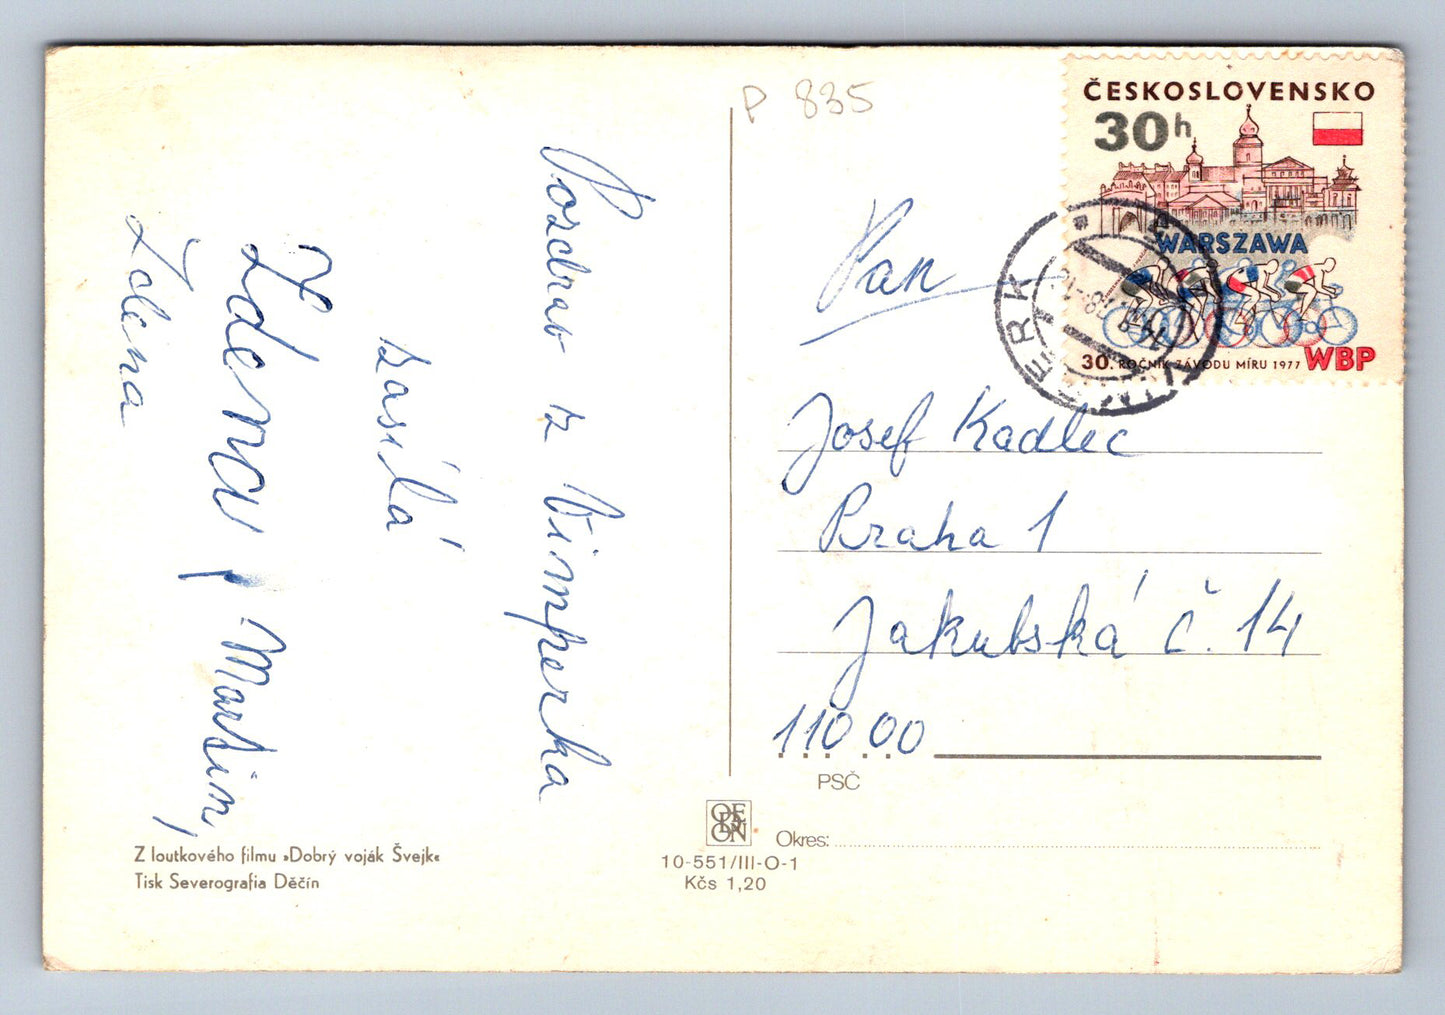 P 835
ČESKOSLOVENSKO
30h
WARSZAWA
30. ROČNÍK ZÁVODU MÍRU 1977 WBP
VIMPERK
Pozdrav z Vimperka
zasílá
Zdena, Martin,
Zdena
Pan
Josef Kadlec
Praha 1
Jakubská č. 14
110 00
PSČ
Okres:
ODEON
10-551/III-O-1
Kčs 1,20
Z loutkového filmu »Dobrý voják Švejk«
Tisk Severografia Děčín